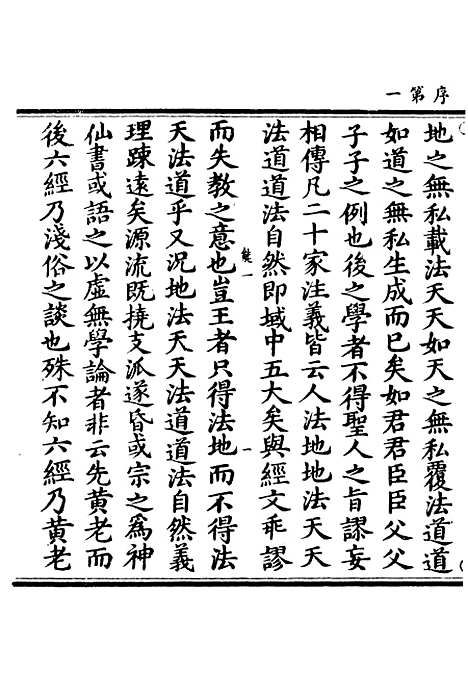 序第一
地之無私載法天天如天之無私覆法道道
如道之無私生成而已矣如君君臣臣父父
子子之例也後之學者不得聖人之旨謬妄
相傳凡二十家注義皆云人法地地法天天
法道道法自然即域中五大矣與經文乖謬
而失教之意也豈王者只得法地而不得法
天法道乎又況地法天天法道道法自然義
理踈遠矣源流既撓支派遂昏或宗之為神
仙書或語之以虛無學論者非云先黃老而
後六經乃淺俗之談也殊不知六經乃黃老